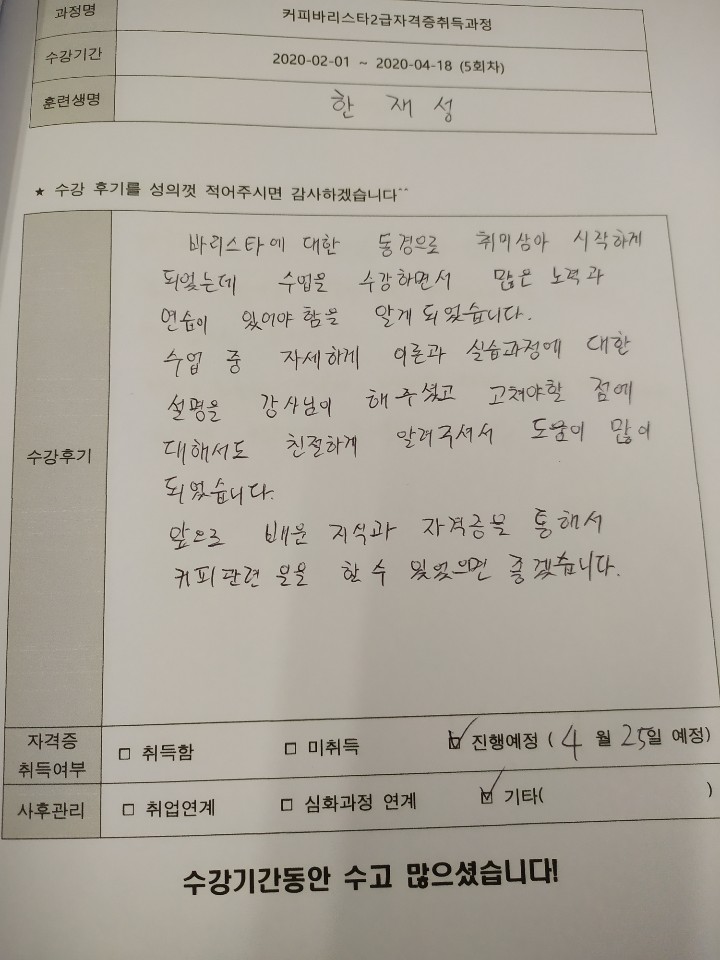 과정명 커피바리스타2급자격증취득과정
수강기간 2020-02-01 ~ 2020-04-18 (5회차)
훈련생명 한 재 성
★ 수강 후기를 성의껏 적어주시면 감사하겠습니다^^
수강후기
바리스타에 대한 동경으로 취미삼아 시작하게
되었는데 수업을 수강하면서 많은 노력과
연습이 있어야 함을 알게 되었습니다.
수업 중 자세하게 이론과 실습과정에 대한
설명을 강사님이 해주셨고 고쳐야할 점에
대해서도 친절하게 알려주셔서 도움이 많이
되었습니다.
앞으로 배운 지식과 자격증을 통해서
커피관련 일을 할 수 있었으면 좋겠습니다.
자격증 취득여부 □ 취득함 □ 미취득 ☑ 진행예정 ( 4 월 25일 예정)
사후관리 □ 취업연계 □ 심화과정 연계 ☑ 기타( )
수강기간동안 수고 많으셨습니다!